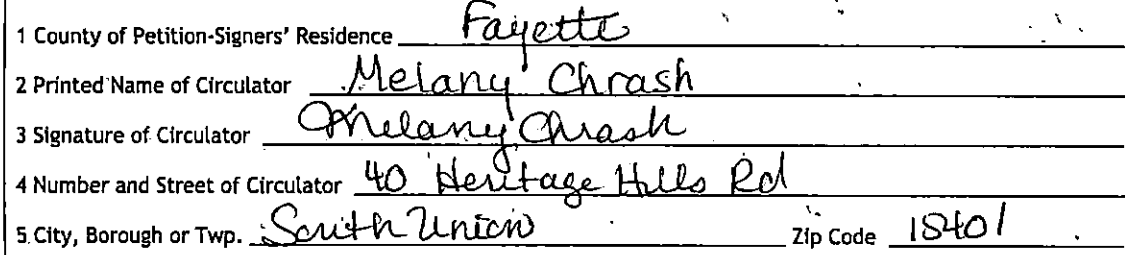 1 County of Petition-Signers' Residence Fayette
2 Printed Name of Circulator Melany Chrash
3 Signature of Circulator Melany Chrash
4 Number and Street of Circulator 40 Heritage Hills Rd
5 City, Borough or Twp. South Union Zip Code 15401